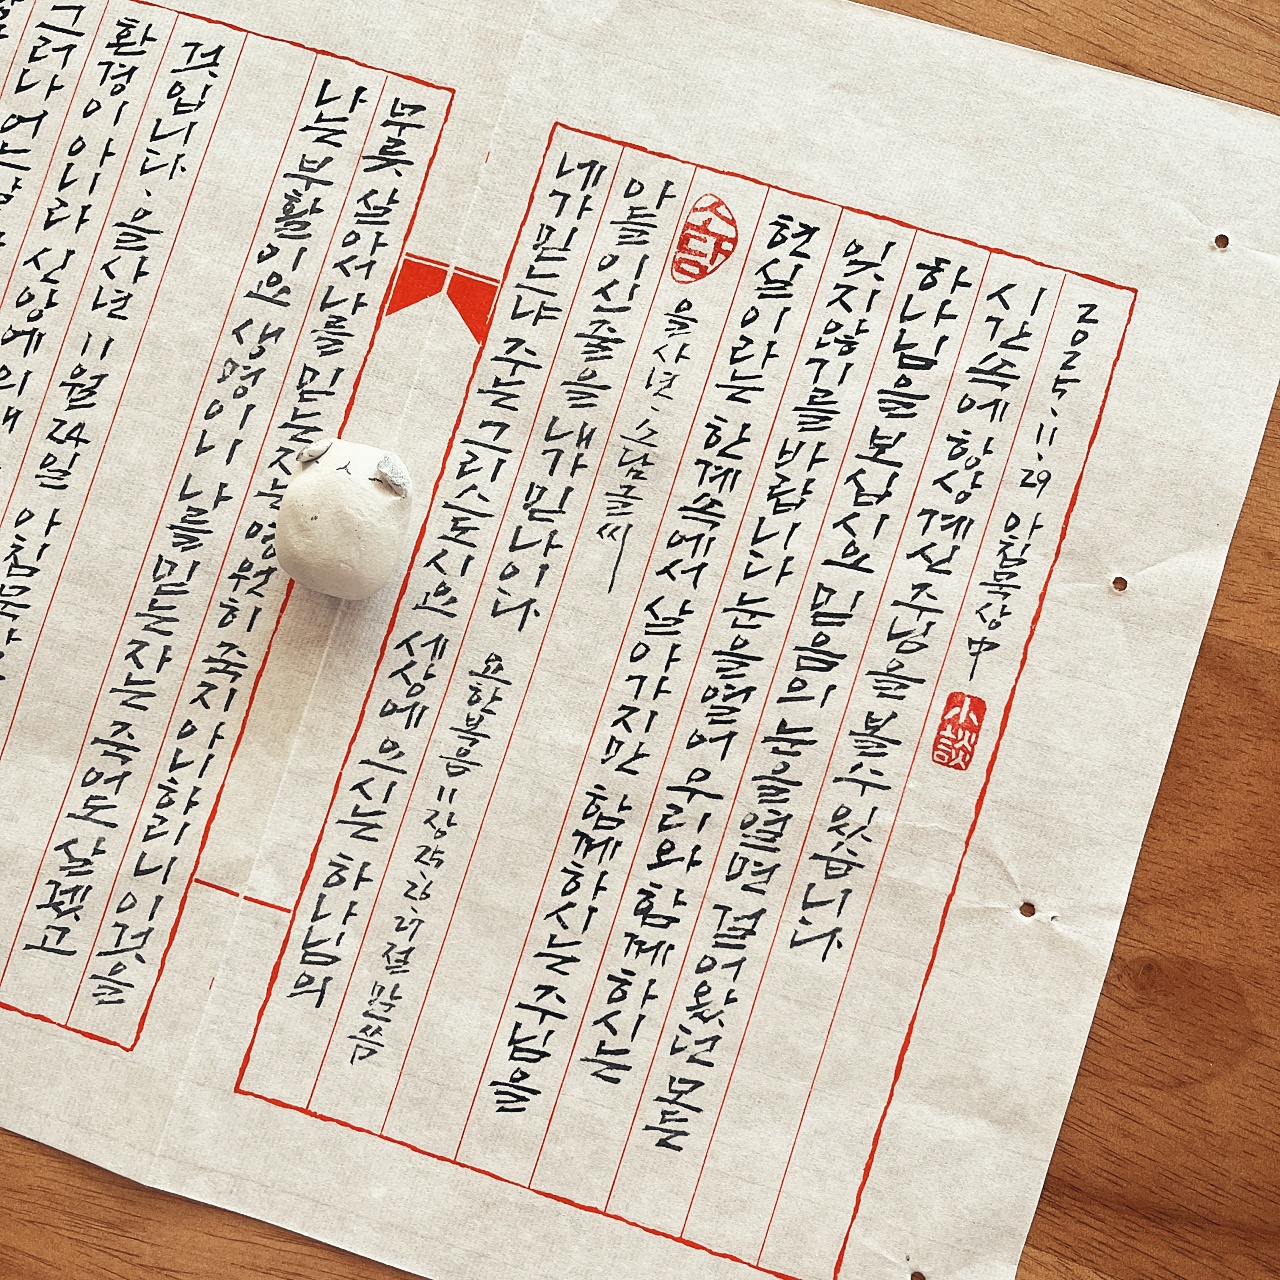 그러나
환경이 아니라 신앙에의해
것입니다. 을사년 11월 24일 아침묵상
나는 부활이요 생명이니 나를 믿는자는 죽어도 살겠고
무릇 살아서 나를 믿는자는 영원히 죽지 아니하리니 이것을
네가 믿느냐 주는 그리스도시요 세상에 오시는 하나님의
아들이신줄을 내가 믿나이다. 요한복음 11장 25, 26, 27절 말씀
소담 을사년. 소담글씨
현실이라는 한계속에서 살아가지만 함께하시는 주님을
잊지않기를 바랍니다 눈을열어 우리와 함께하시는
하나님을 보십시요 믿음의 눈을열면 걸어왔던 모든
시간속에 항상계신 주님을 볼수있습니다.
2025. 11. 29 아침묵상中 小談